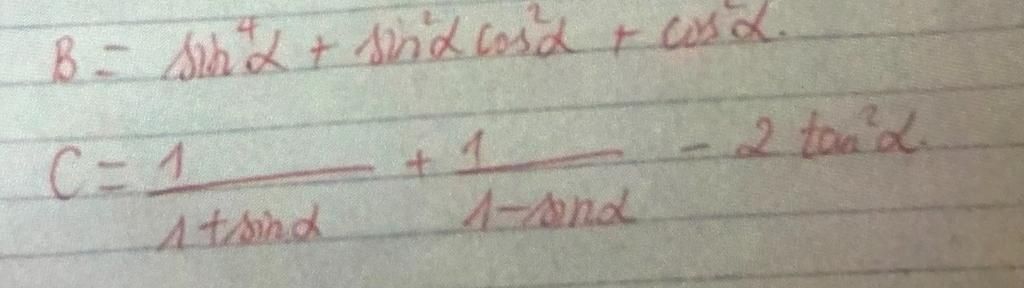 B = sin⁴α + sin²α cos²α + cos²α.
C = 1/(1+sinα) + 1/(1-sinα) - 2 tan²α.